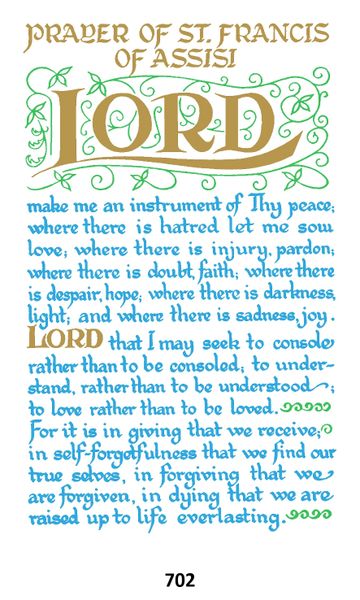 PRAYER OF ST. FRANCIS
OF ASSISI
LORD
make me an instrument of Thy peace;
where there is hatred let me sow
love; where there is injury, pardon;
where there is doubt, faith; where there
is despair, hope; where there is darkness,
light; and where there is sadness, joy.
LORD that I may seek to console
rather than to be consoled; to under-
stand, rather than to be understood;
to love rather than to be loved.
For it is in giving that we receive;
in self-forgetfulness that we find our
true selves, in forgiving that we
are forgiven, in dying that we are
raised up to life everlasting.
702